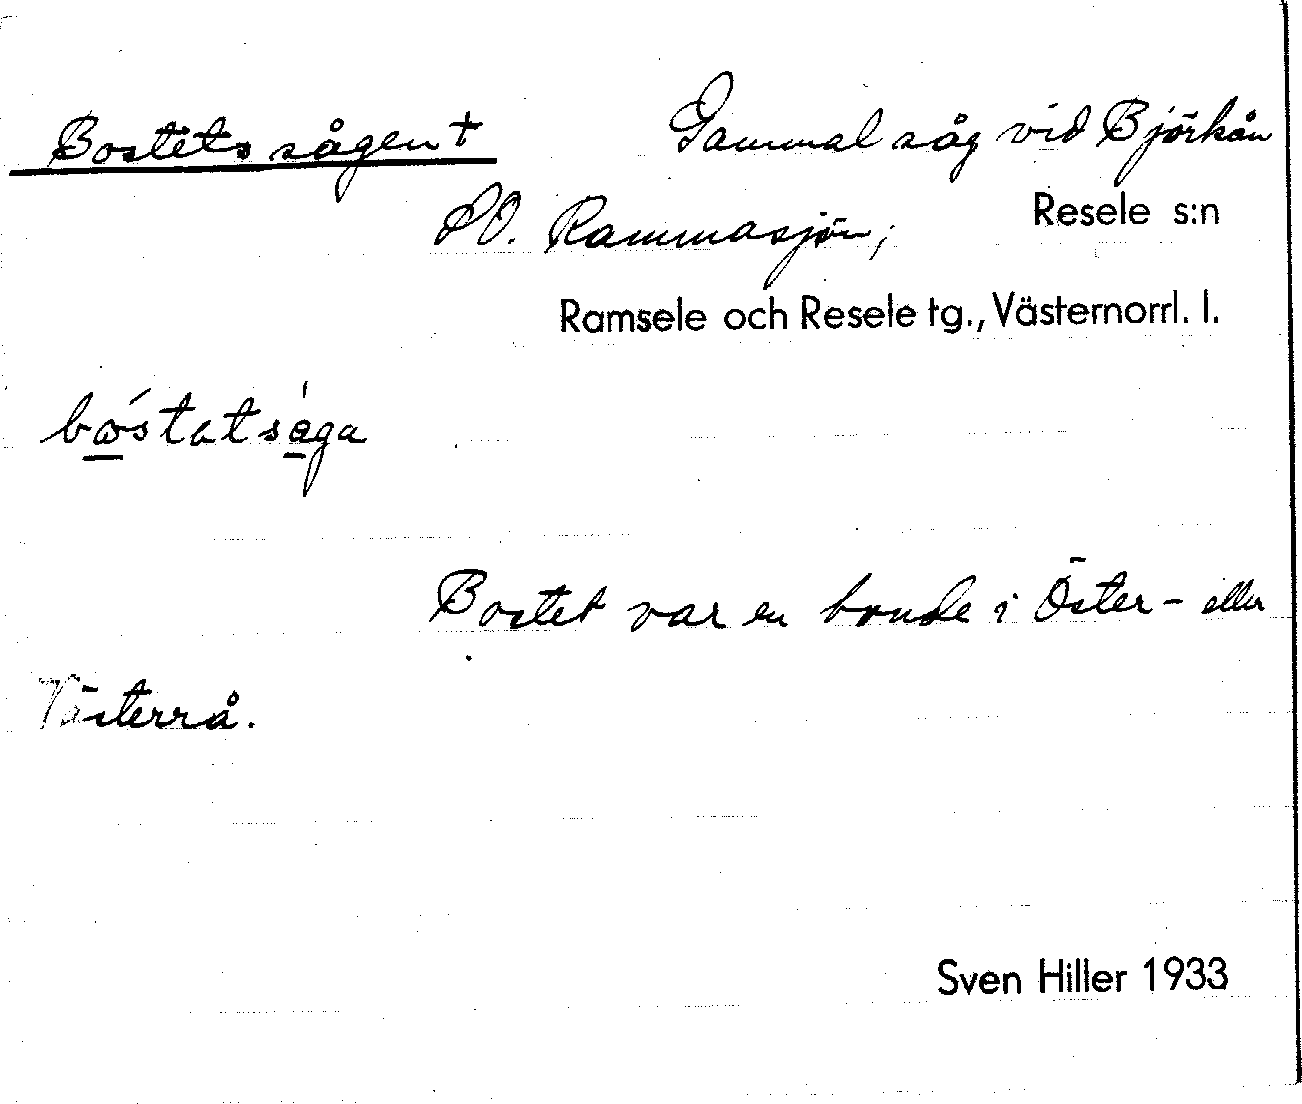 Bostets sågen + Gammal såg vid Björkån
SO. Rammasjön; Resele s:n
Ramsele och Resele tg., Västernorrl. l.
Bostet var en bonde i Öster- eller
Västerrå.
Sven Hiller 1933